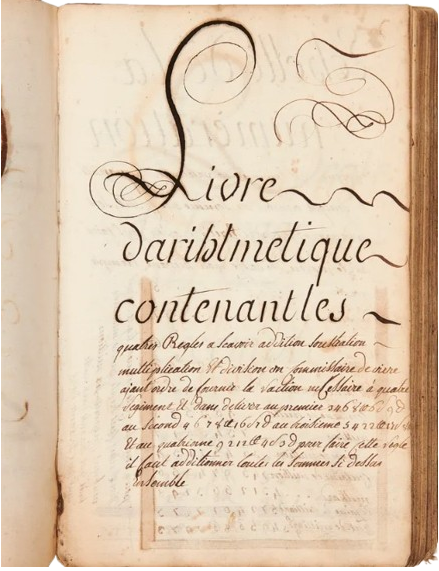 Livre
daritmetique
contenant les
quatres Regles a scavoir addition soustration
multiplication & division un commissaire de vivre
ajant ordre de fournir la ration nécessaire à quatre
Regiment & dans deliver au premier
au second 4678 16 au troisieme
Et au quatrieme 9212 pour faire celle regle
il faut additionner toutes les sommes si dessus
ensemble